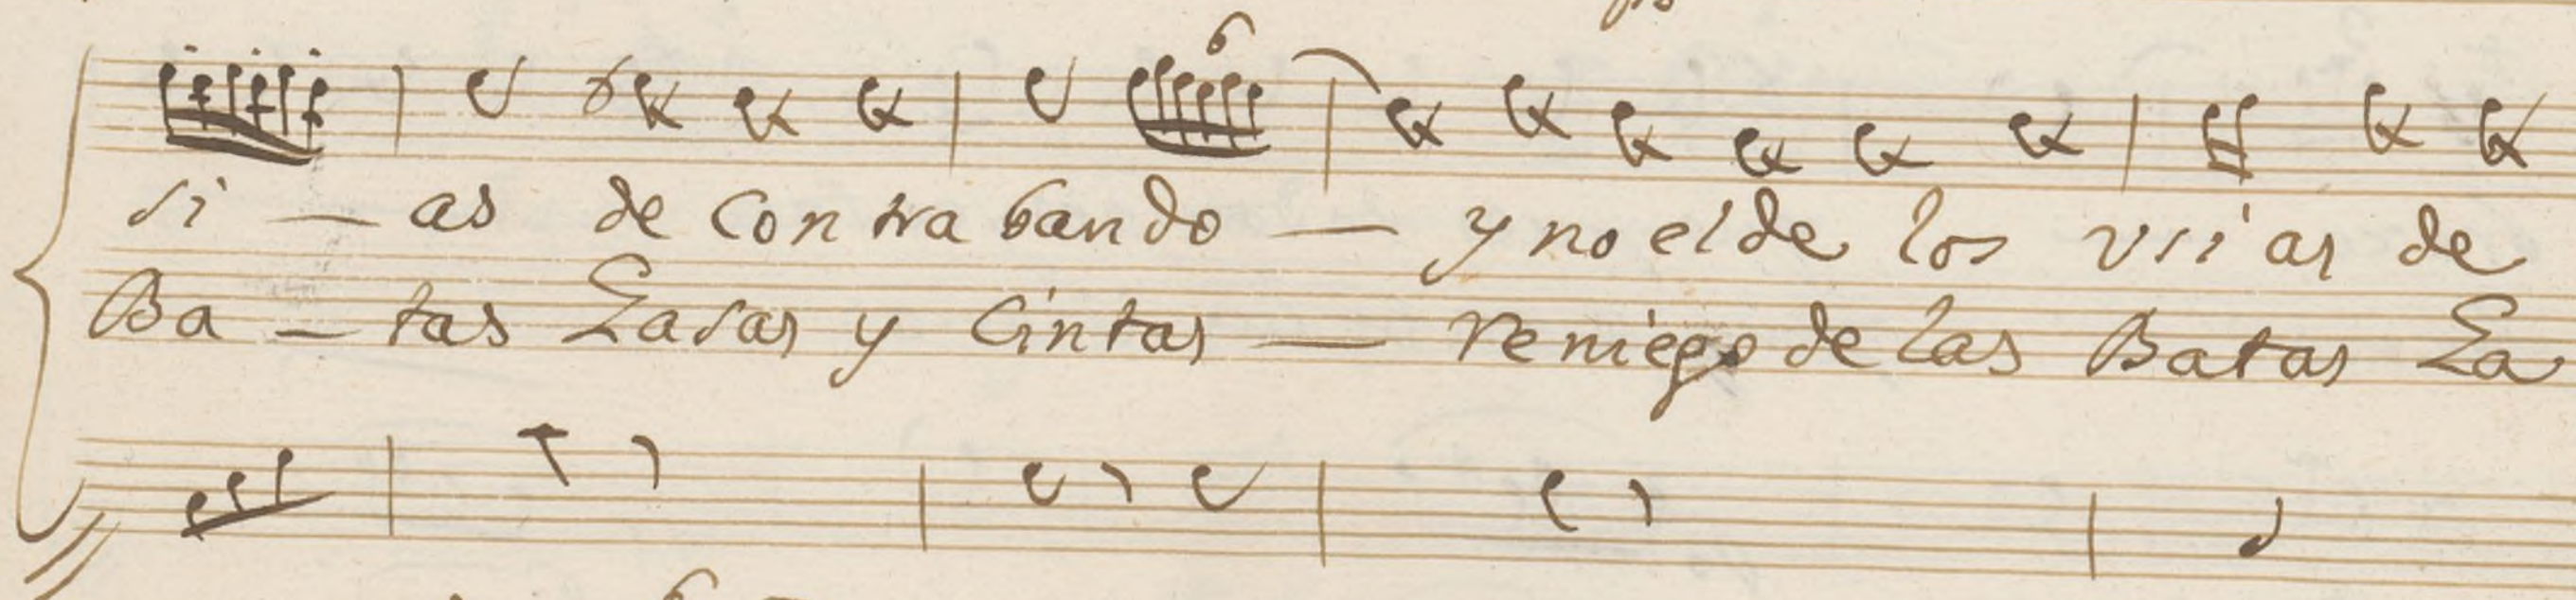 6
si — as de Contrabando — y no el de los usias de
Ba — tas Gasas y Cintas — reniego de las Batas Ga